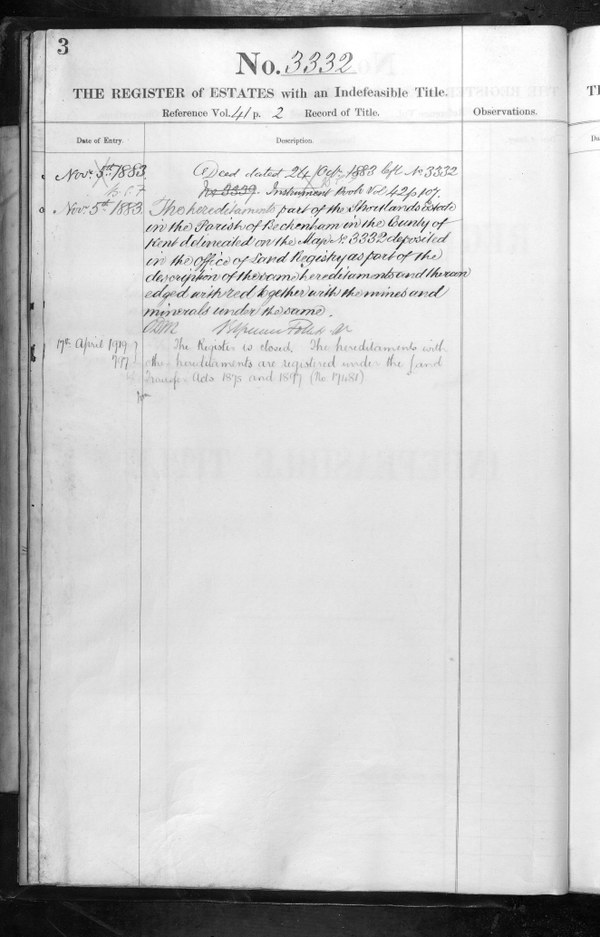 3
No. 3332
THE REGISTER of ESTATES with an Indefeasible Title.
Reference Vol. 41 p. 2 Record of Title.
Observations.
Date of Entry.
Description.
Nov. 5th 1883
Deed dated 24 Oct. 1883 No 3332
No 3339. Instrument Book Vol 42 p 107.
Nov. 5th 1883.
The hereditaments part of the Shortlands Estate
in the Parish of Beckenham in the County of
Kent delineated on the Map No. 3332 deposited
in the Office of Land Registry as part of the
description of the same hereditaments and therein
edged with red together with the mines and
minerals under the same.
17th April 1919
The Register is closed. The hereditaments with
other hereditaments are registered under the Land
Transfer Acts 1875 and 1897